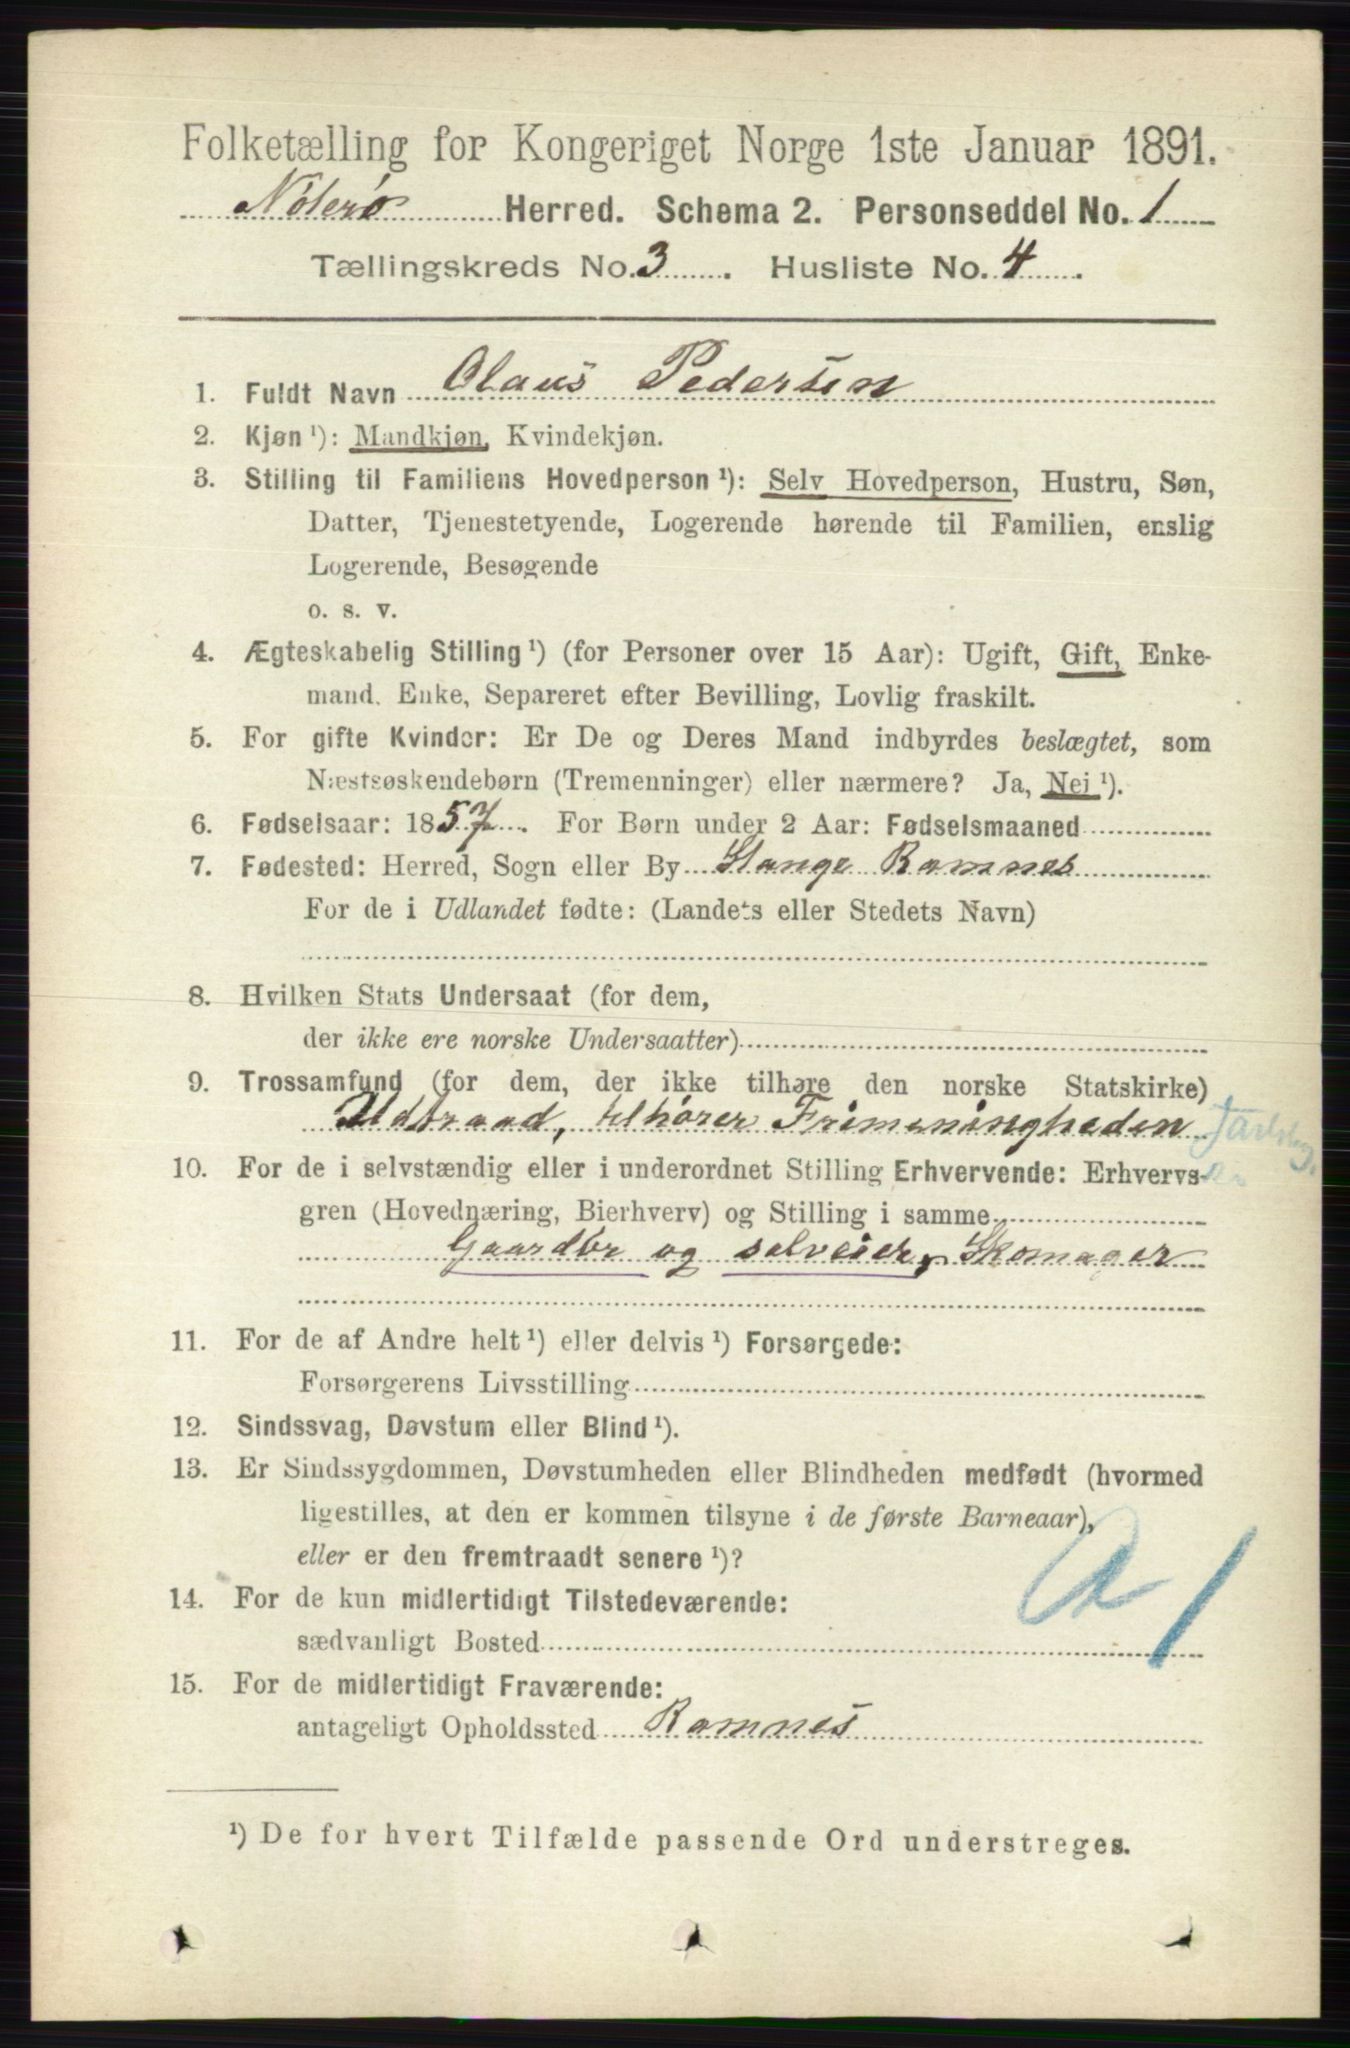 Folketælling for Kongeriget Norge 1ste Januar 1891.
Nøterø Herred. Schema 2. Personseddel No. 1
Tællingskreds No. 3. Husliste No. 4.
1. Fuldt Navn Olaus Pedersen
2. Kjøn ¹): Mandkjøn, Kvindekjøn.
3. Stilling til Familiens Hovedperson ¹): Selv Hovedperson, Hustru, Søn,
Datter, Tjenestetyende, Logerende hørende til Familien, enslig
Logerende, Besøgende
o. s. v.
4. Ægteskabelig Stilling ¹) (for Personer over 15 Aar): Ugift, Gift, Enke-
mand. Enke, Separeret efter Bevilling, Lovlig fraskilt.
5. For gifte Kvinder: Er De og Deres Mand indbyrdes beslægtet, som
Næstsøskendebørn (Tremenninger) eller nærmere? Ja, Nei ¹).
6. Fødselsaar: 1857. For Børn under 2 Aar: Fødselsmaaned
7. Fødested: Herred, Sogn eller By Stange Ramnes
For de i Udlandet fødte: (Landets eller Stedets Navn)
8. Hvilken Stats Undersaat (for dem,
der ikke ere norske Undersaatter)
9. Trossamfund (for dem, der ikke tilhøre den norske Statskirke)
Udtraad, tilhører Frimeningheden Jarlsberg.
10. For de i selvstændig eller i underordnet Stilling Erhvervende: Erhvervs-
gren (Hovednæring, Bierhverv) og Stilling i samme
Gaardbr og selveier, Skomager
11. For de af Andre helt ¹) eller delvis ¹) Forsørgede:
Forsørgerens Livsstilling
12. Sindssvag, Døvstum eller Blind ¹).
13. Er Sindssygdommen, Døvstumheden eller Blindheden medfødt (hvormed
ligestilles, at den er kommen tilsyne i de første Barneaar),
eller er den fremtraadt senere ¹)?
14. For de kun midlertidigt Tilstedeværende:
sædvanligt Bosted
15. For de midlertidigt Fraværende:
antageligt Opholdssted Ramnes
¹) De for hvert Tilfælde passende Ord understreges.